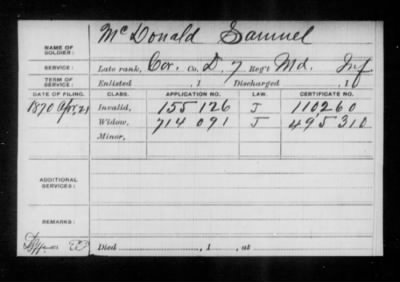 McDonald Samuel
NAME OF SOLDIER:
SERVICE: Late rank, Cor. Co. D, 7 Reg't Md. Inf
TERM OF SERVICE: Enlisted , 1 Discharged , 1
DATE OF FILING. CLASS. APPLICATION NO. LAW. CERTIFICATE NO.
1870 Apr, 21 Invalid, 155 126 J 110260
Widow, 714 091 J 495 310
Minor,
ADDITIONAL SERVICES:
REMARKS:
Died , 1 , at